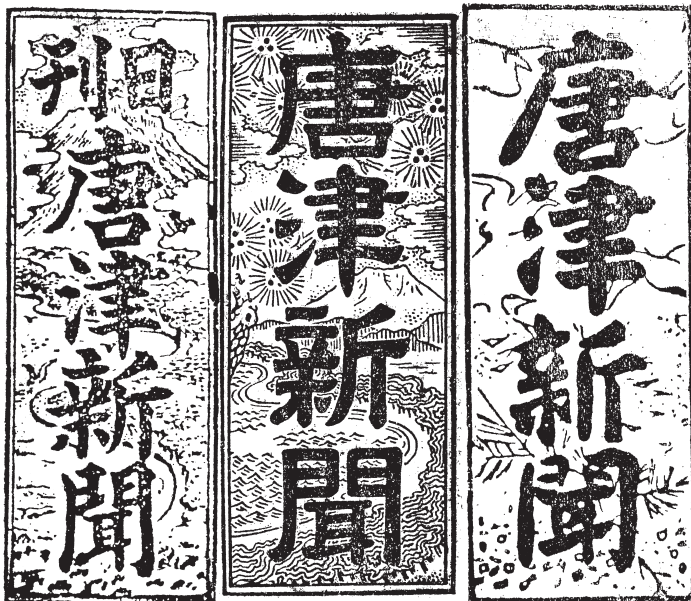 唐津新聞
唐津新聞
日刊
唐津新聞